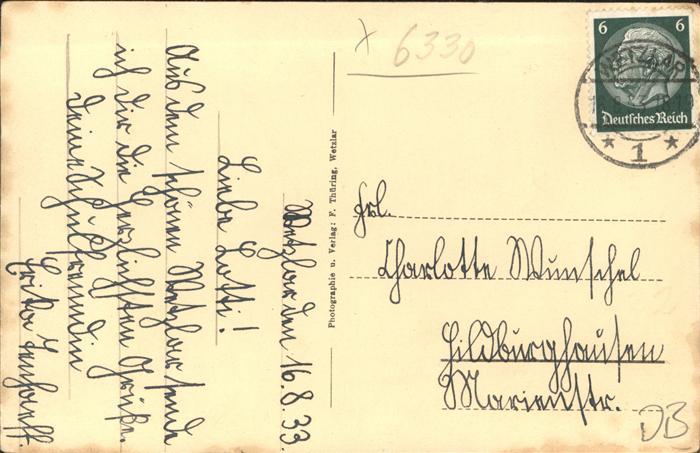 Wetzlar den 16.8.33.
Liebe Lotti!
Aus dem schönen Wetzlar sende
ich dir die herzlichsten Grüße.
Deine Schulfreundin
Erika
Photographie u. Verlag: F. Thüring, Wetzlar
6330
6 6
Deutsches Reich
WETZLAR
* 1 *
Frl.
Charlotte Wunschel
Hildburghausen
Marienstr.